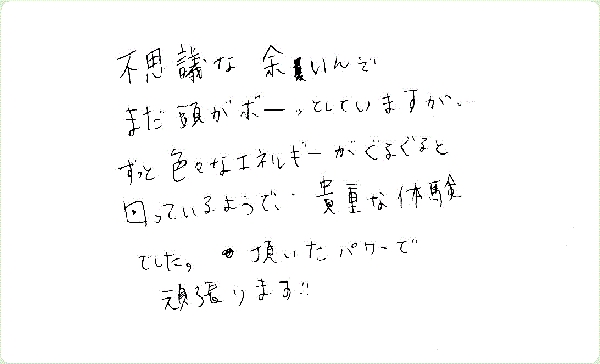 不思議な余いんで
まだ頭がボーッとしていますが、
ずっと色々なエネルギーがぐるぐると
回っているようで、貴重な体験
でした。頂いたパワーで
頑張ります!!